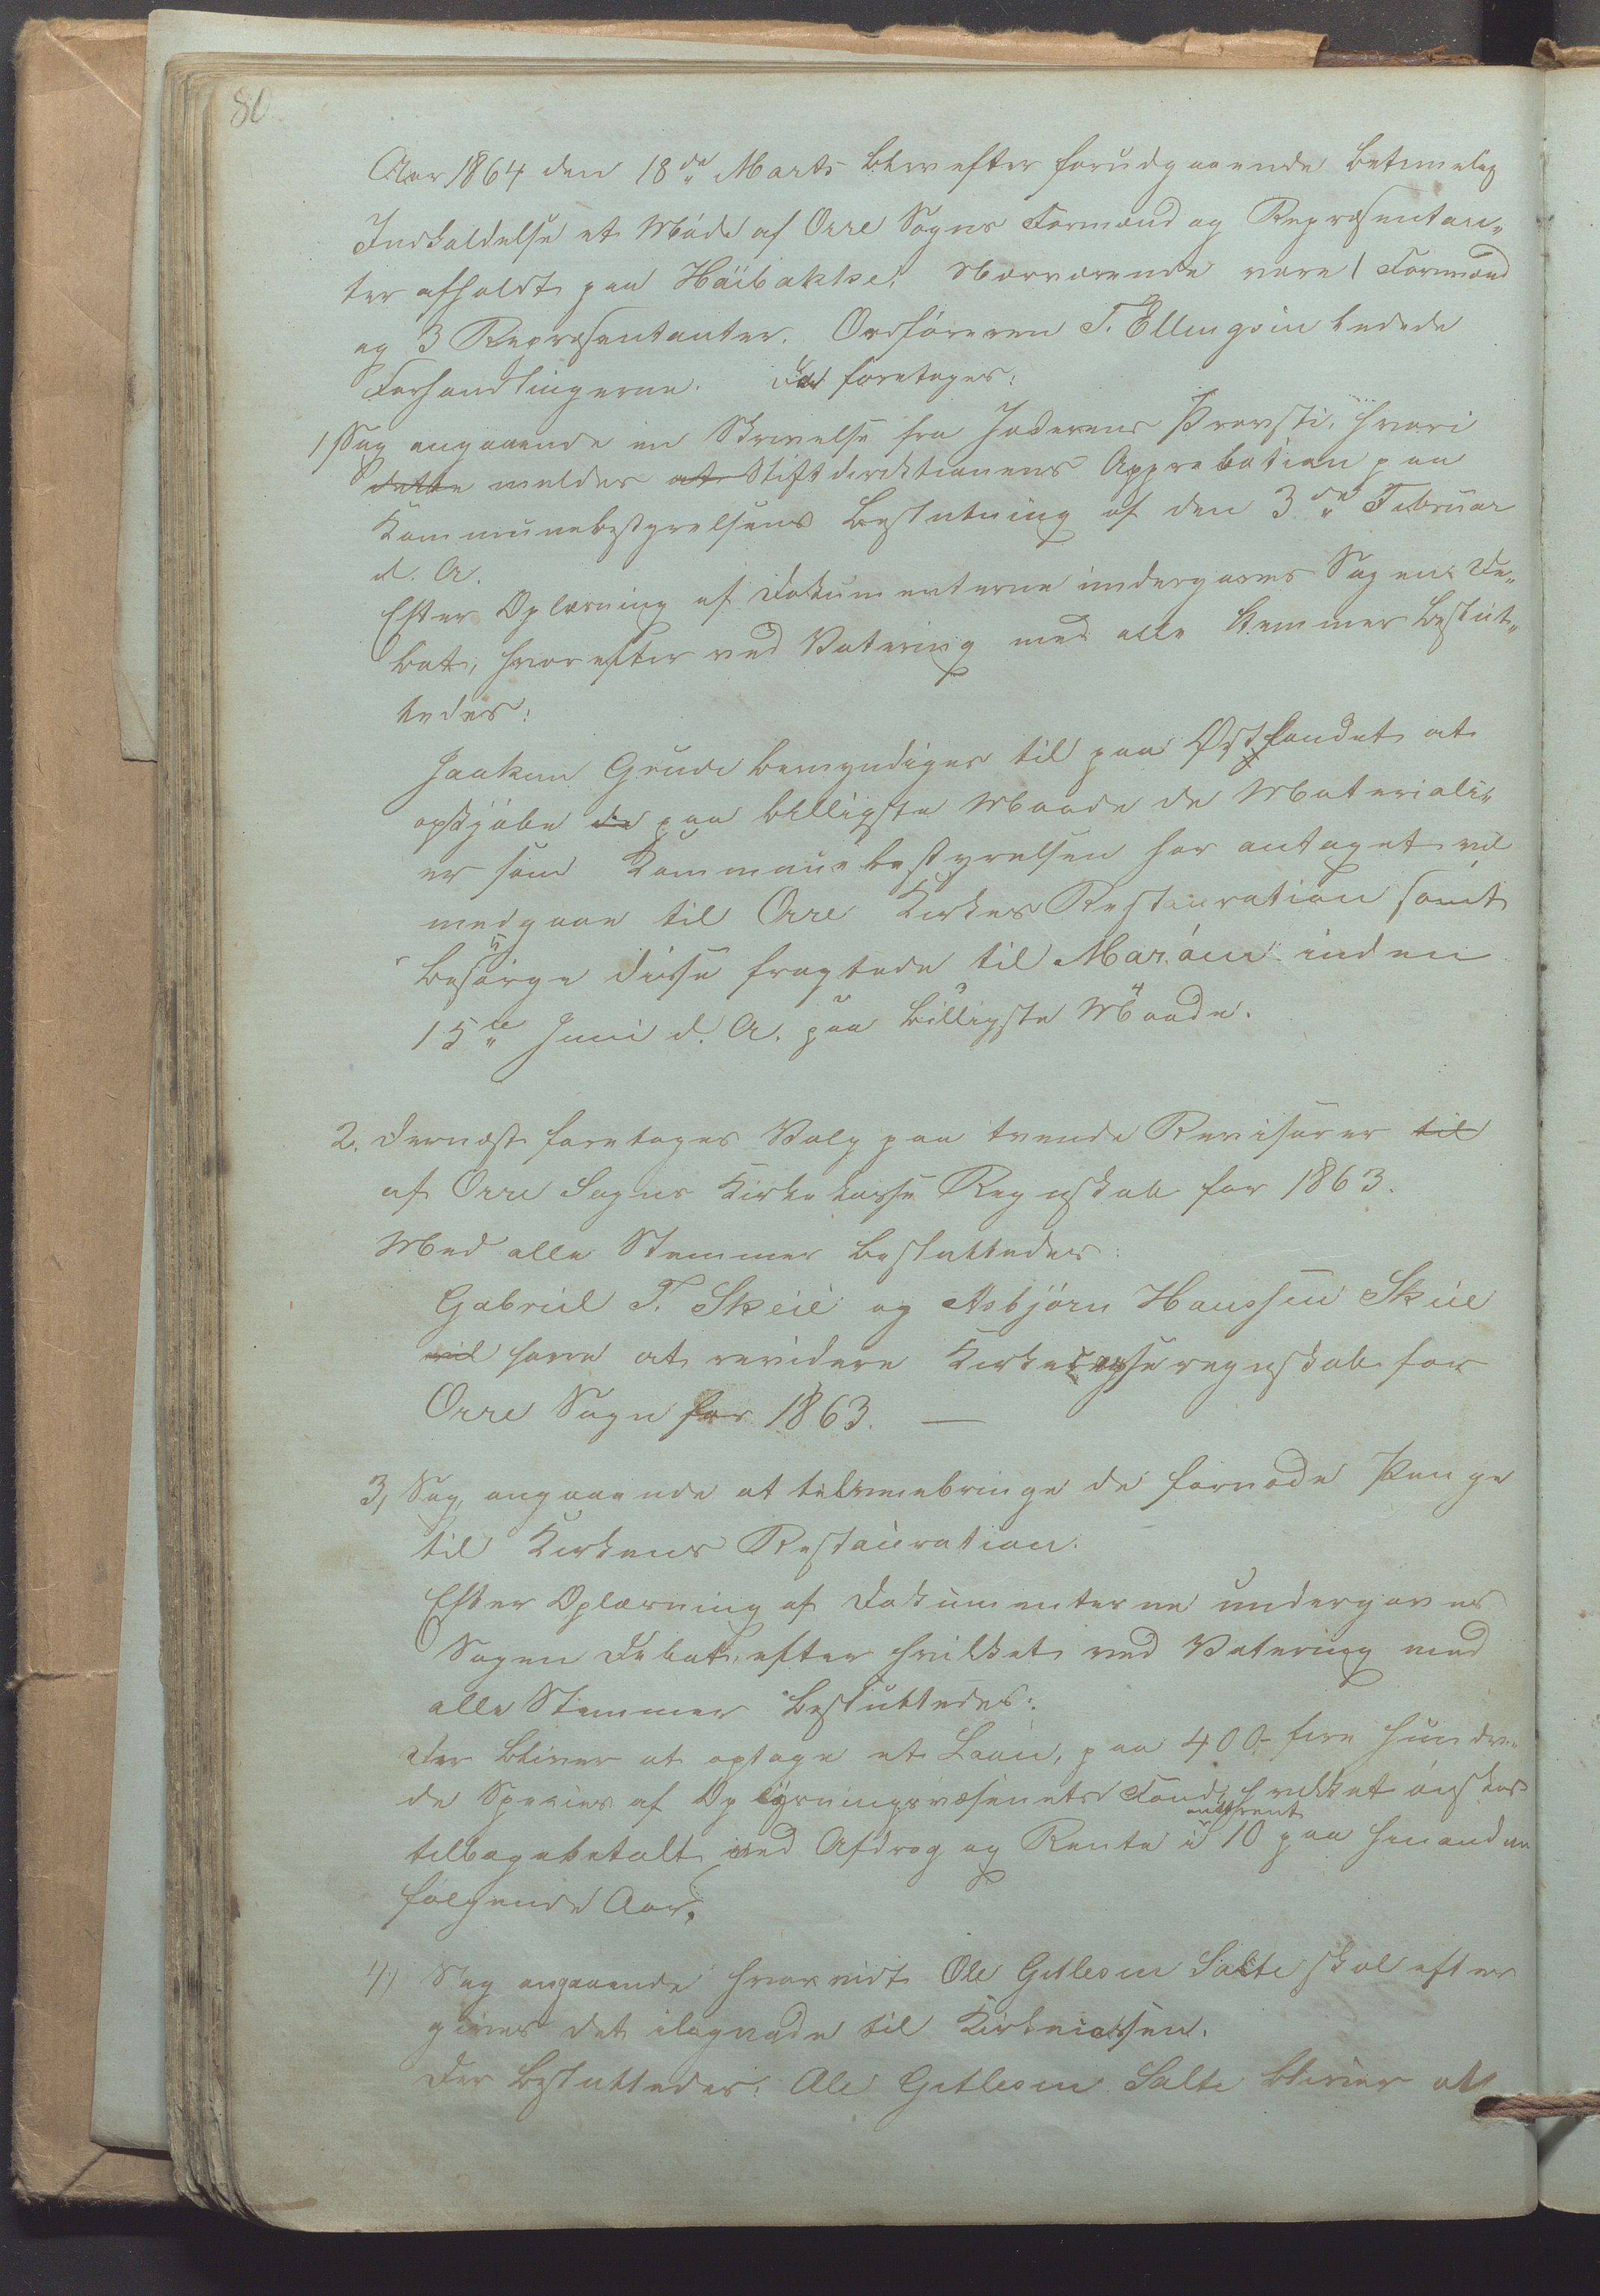 80
Aar 1864 den 18de Marts blev efter forudgaaende betimelig
Indkaldelse et Möde af Orre Sogns Formænd og Repræsentan„
ter afholdt paa Häibakke. Nærværende vare 1 Formænd
og 3 Repræsentanter. Ordföreren T. Ellingsen ledede
Forhandlingerne. Da foretoges:
1) Sag angaaende en Skrivelse fra Jæderens Provsti, hvori
dette meldes at Stiftdirektionens Approbation paa
Kommunebestyrelsens Beslutning af den 3de Februar
d. A.
Efter Oplæsning af Dokumenterne undergaves Sagen De„
bat, hvorefter ved Votering med alle Stemmer beslut„
tedes:
Jaakim Grude bemyndiges til paa Østlandet at
opkjöbe de paa billigste Maade de Materiali„
er som Kommunebestyrelsen har antaget vil
medgaae til Orre Kirkes Restauration samt
besörge disse fragtede til Marøen inden
15de Juni d. A. paa billigste Maade.
2. Dernæst foretoges Valg paa tvende Revisorer til
af Orre Sogns Kirkekasse Regnskab for 1863.
Med alle Stemmer besluttedes:
Gabriel T. Skeie og Asbjörn Hanssen Skeie
vil have at revidere Kirkekasseregnskab for
Orre Sogn for 1863. —
3, Sag, angaaende at tilveiebringe de fornødne Penge
til Kirkens Restauration.
Efter Oplæsning af Dokumenterne undergaves
Sagen Debat, efter hvilket ved Votering med
alle Stemmer besluttedes:
Der bliver at optage et Laan, paa 400 fire hundre„
de Species af Oplysningsvæsenets Fond, hvilket önskes
tilbagebetalt med Afdrag og Rente i 10 paa hinanden
følgende Aar.
4) Sag angaaende hvorvidt Ole Gitlesen Salte skal efter
gives det ilagnede til Kirkekassen.
Der besluttedes: Ole Gitlesen Salte bliver at